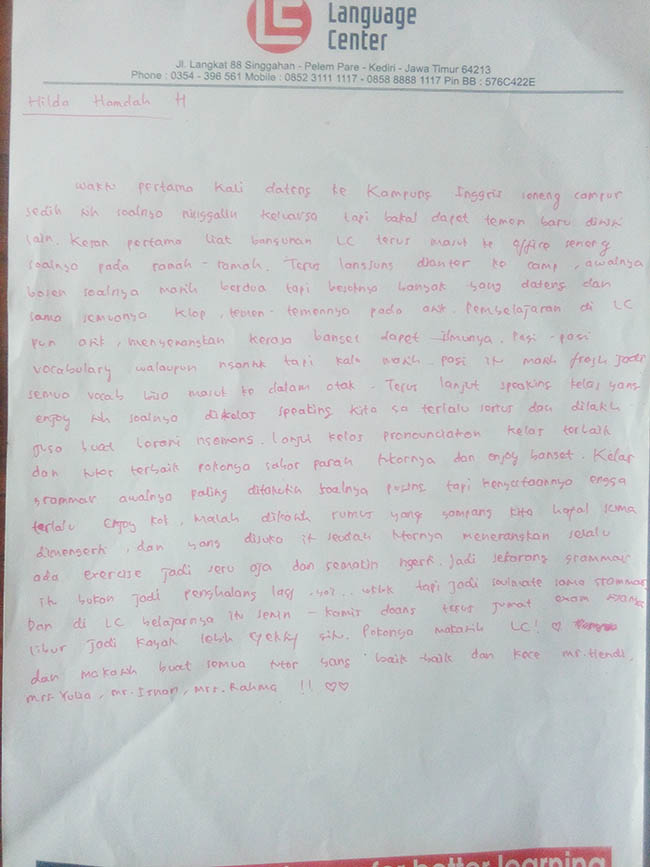 Language
Center
Jl. Langkat 88 Singgahan - Pelem Pare - Kediri - Jawa Timur 64213
Phone : 0354 - 396 561 Mobile : 0852 3111 1117 - 0858 8888 1117 Pin BB : 576C422E
Hilda Hamdah H
waktu pertama kali dateng ke Kampung Inggris seneng campur
sedih sih soalnya ninggalin keluarga tapi bakal dapet temen baru disisi
lain. Kesan pertama liat bangunan LC terus masuk ke office seneng
soalnya pada ramah-ramah. Terus langsung dianter ke camp, awalnya
bosen soalnya masih berdua tapi besoknya banyak yang dateng dan
sama semuanya klop, temen-temennya pada asik. Pembelajaran di LC
pun asik, menyenangkan kerasa banget dapet ilmunya. Pagi-pagi
vocabulary walaupun ngantuk tapi kalo masih pagi itu masih fresh jadi
semua vocab bisa masuk ke dalam otak. Terus lanjut speaking kelas yang
enjoy sih soalnya dikelas speaking kita ga terlalu serius dan dilatih
juga buat berani ngomong. lanjut kelas pronounciation kelas terbaik
dan tutor terbaik pokonya sabar parah tutornya dan enjoy banget. Kelas
grammar awalnya paling ditakutin soalnya pusing tapi kenyataannya engga
terlalu enjoy kok, malah dikasih rumus yang gampang kita hapal sama
dimengerti, dan yang disuka itu seudah tutornya menerangkan selalu
ada exercise jadi seru aja dan semakin ngerti. Jadi sekarang grammar
itu bukan jadi penghalang lagi tapi jadi soulmate sama grammar
Dan di LC belajarnya itu senin - kamis doang terus jumat exam
libur jadi kayak lebih sih. Pokonya makasih LC! ♡
dan makasih buat semua tutor yang baik-baik dan kece mr. Hendi,
mrs. Yulia, mr. Isnan, mrs. Rahma !! ♡♡
for better learning